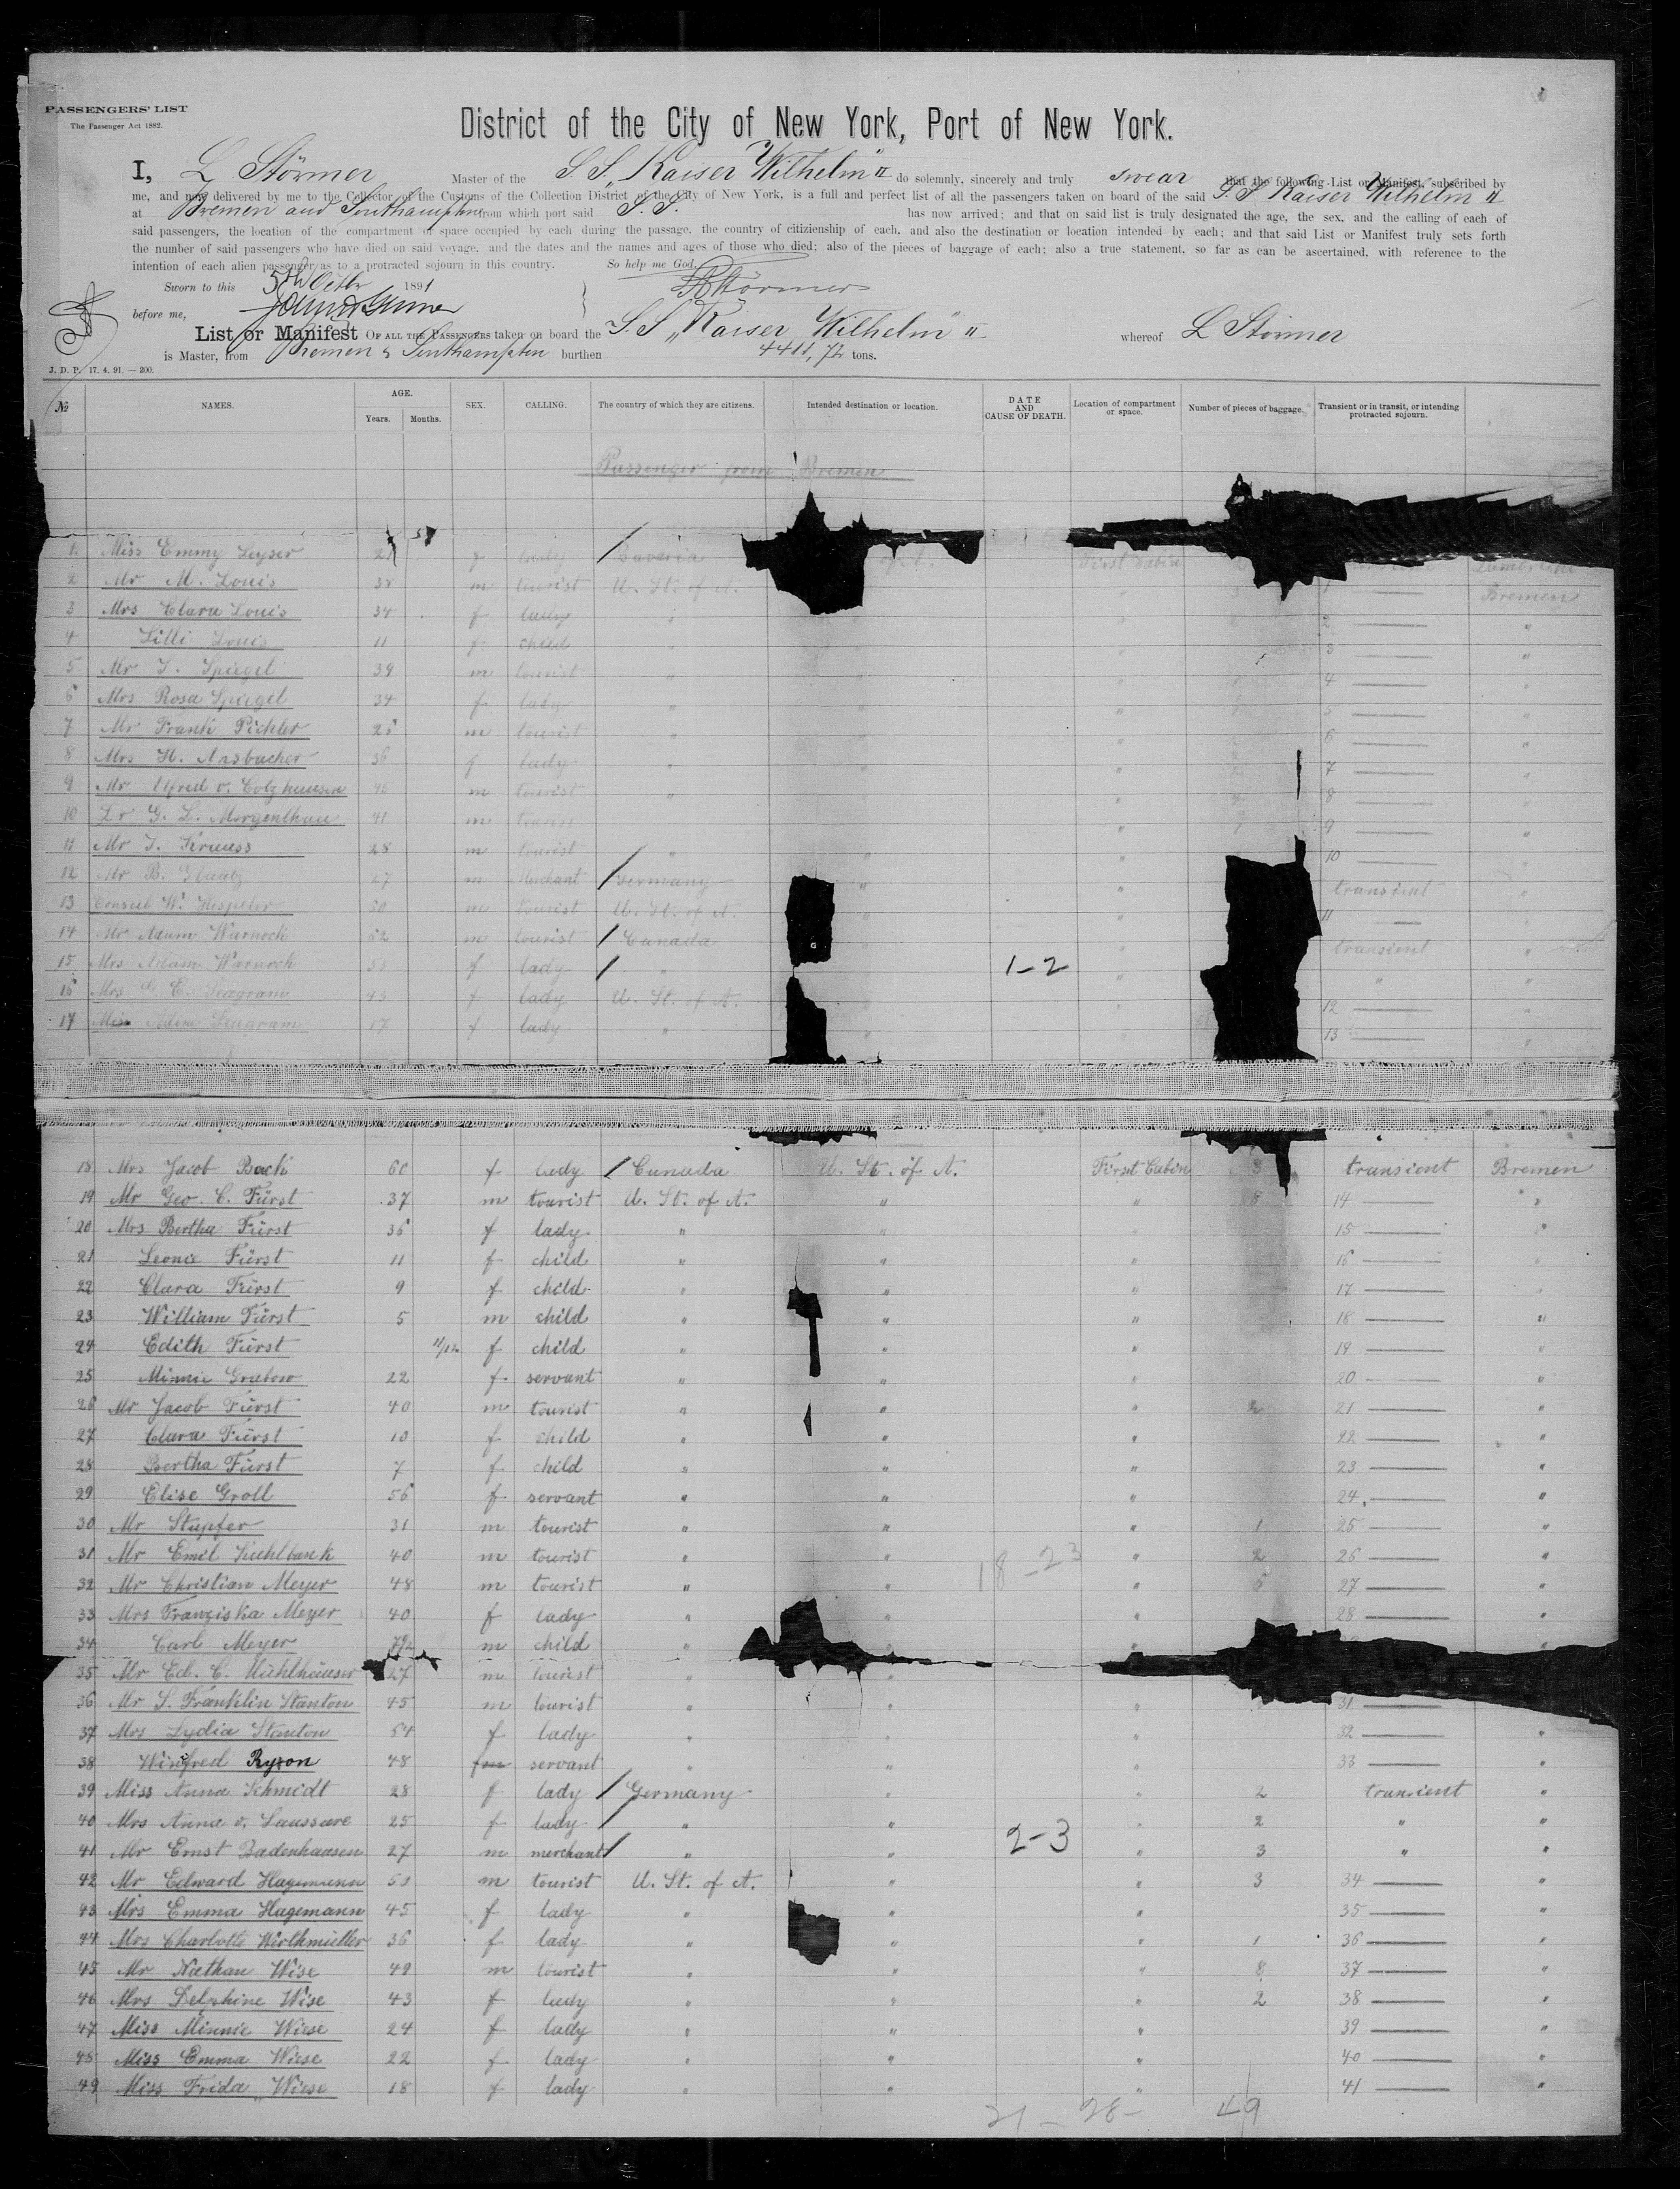 PASSENGERS' LIST
The Passenger Act 1882.
District of the City of New York, Port of New York.
I, L Störmer Master of the S.S. „Kaiser Wilhelm" II do solemnly, sincerely and truly swear that the following List or Manifest, subscribed by
me, and now delivered by me to the Collector of the Customs of the Collection District of the City of New York, is a full and perfect list of all the passengers taken on board of the said S.S Kaiser Wilhelm II
at Bremen and Southampton from which port said S.S. has now arrived; and that on said list is truly designated the age, the sex, and the calling of each of
said passengers, the location of the compartment of space occupied by each during the passage, the country of citizienship of each, and also the destination or location intended by each; and that said List or Manifest truly sets forth
the number of said passengers who have died on said voyage, and the dates and the names and ages of those who died; also of the pieces of baggage of each; also a true statement, so far as can be ascertained, with reference to the
intention of each alien passenger as to a protracted sojourn in this country. So help me God,
Sworn to this 5th Octbr 1891 LStörmer
before me,
List or Manifest OF ALL THE PASSENGERS taken on board the S.S „Kaiser Wilhelm" II whereof L Störmer
is Master, from Bremen & Southampton burthen 4411,72 tons.
J. D. P. 17. 4. 91. — 200.
№ NAMES. AGE. Years. Months. SEX. CALLING. The country of which they are citizens. Intended destination or location. DATE AND CAUSE OF DEATH. Location of compartment or space. Number of pieces of baggage. Transient or in transit, or intending protracted sojourn.
Passenger from Bremen
1. Miss Emmy Leyser f lady Bavaria of A. First Cabin
2 Mr M. Louis 38 m tourist U. St. of A. 1 Bremen
3 Mrs Clara Louis 34 f lady " 2 "
4 Lilli Louis 11 f child " 3 "
5 Mr I. Spiegel 39 m tourist " 4 "
6 Mrs Rosa Spiegel 34 f lady " 5 "
7 Mr Frank Pichler 25 m tourist " 6 "
8 Mrs H. Ansbacher 36 f lady " 7 "
9 Mr Alfred v. m tourist " 8 "
10 Dr G. L. Morgenthau 41 m tourist 9 "
11 Mr 28 m tourist " 10 "
12 Mr B. 27 m Merchant Germany " transient "
13 Consul W. Hespeler 50 m tourist U. St. of A. " 11 "
14 Mr Adam Warnock 52 m tourist Canada transient "
15 Mrs Adam Warnock f lady " 1-2 " "
16 Mrs Seagram f lady U. St. of A. 12 "
17 Miss Seagram 17 f lady " 13 "
18 Mrs Jacob Bach 60 f lady Canada U. St. of A. First Cabin 3 transient Bremen
19 Mr Geo. C. Fürst 37 m tourist U. St. of A. " " 8 14 "
20 Mrs Bertha Fürst 36 f lady " " 15 "
21 Leonie Fürst 11 f child " " " 16 "
22 Clara Fürst 9 f child " " " 17 "
23 William Fürst 5 m child " " " 18 "
24 Edith Fürst 11/12 f child " " " 19 "
25 Minnie Grabow 22 f servant " " " 20 "
26 Mr Jacob Fürst 40 m tourist " " " 2 21 "
27 Clara Fürst 10 f child " " 22 "
28 Bertha Fürst 7 f child " " " 23 "
29 Elise Groll 56 f servant " " " 24 "
30 Mr Stupfer 31 m tourist " " " 1 25 "
31 Mr Emil Kuhlbank 40 m tourist " " 18-23 " 2 26 "
32 Mr Christian Meyer 48 m tourist " " " 6 27 "
33 Mrs Franziska Meyer 40 f lady " " " 28 "
34 Carl Meyer m child " " "
35 Mr Ed. C. Mühlhäuser 27 m tourist " "
36 Mr S. Franklin Stanton 45 m tourist " " " 31
37 Mrs Lydia Stanton 54 f lady " " " 32 "
38 Winifred Ryxon 48 f servant " " " 33 "
39 Miss Anna Schmidt 28 f lady Germany " " 2 transient "
40 Mrs Anna v. Saussare 25 f lady " " " 2 " "
41 Mr Ernst Badenhausen 27 m merchant " " 2-3 " 3 " "
42 Mr Edward Hagemann 51 m tourist U. St. of A. " " 3 34 "
43 Mrs Emma Hagemann 45 f lady " " " 35 "
44 Mrs Charlotte Wirthmüller 36 f lady " " " 1 36 "
45 Mr Nathan Wise 49 m tourist " " " 8 37 "
46 Mrs Delphine Wise 43 f lady " " " 2 38 "
47 Miss Minnie Wiese 24 f lady " " " 39 "
48 Miss Emma Wiese 22 f lady " " " 40 "
49 Miss Frida Wiese 18 f lady " " " 41 "
21 - 28 - 49